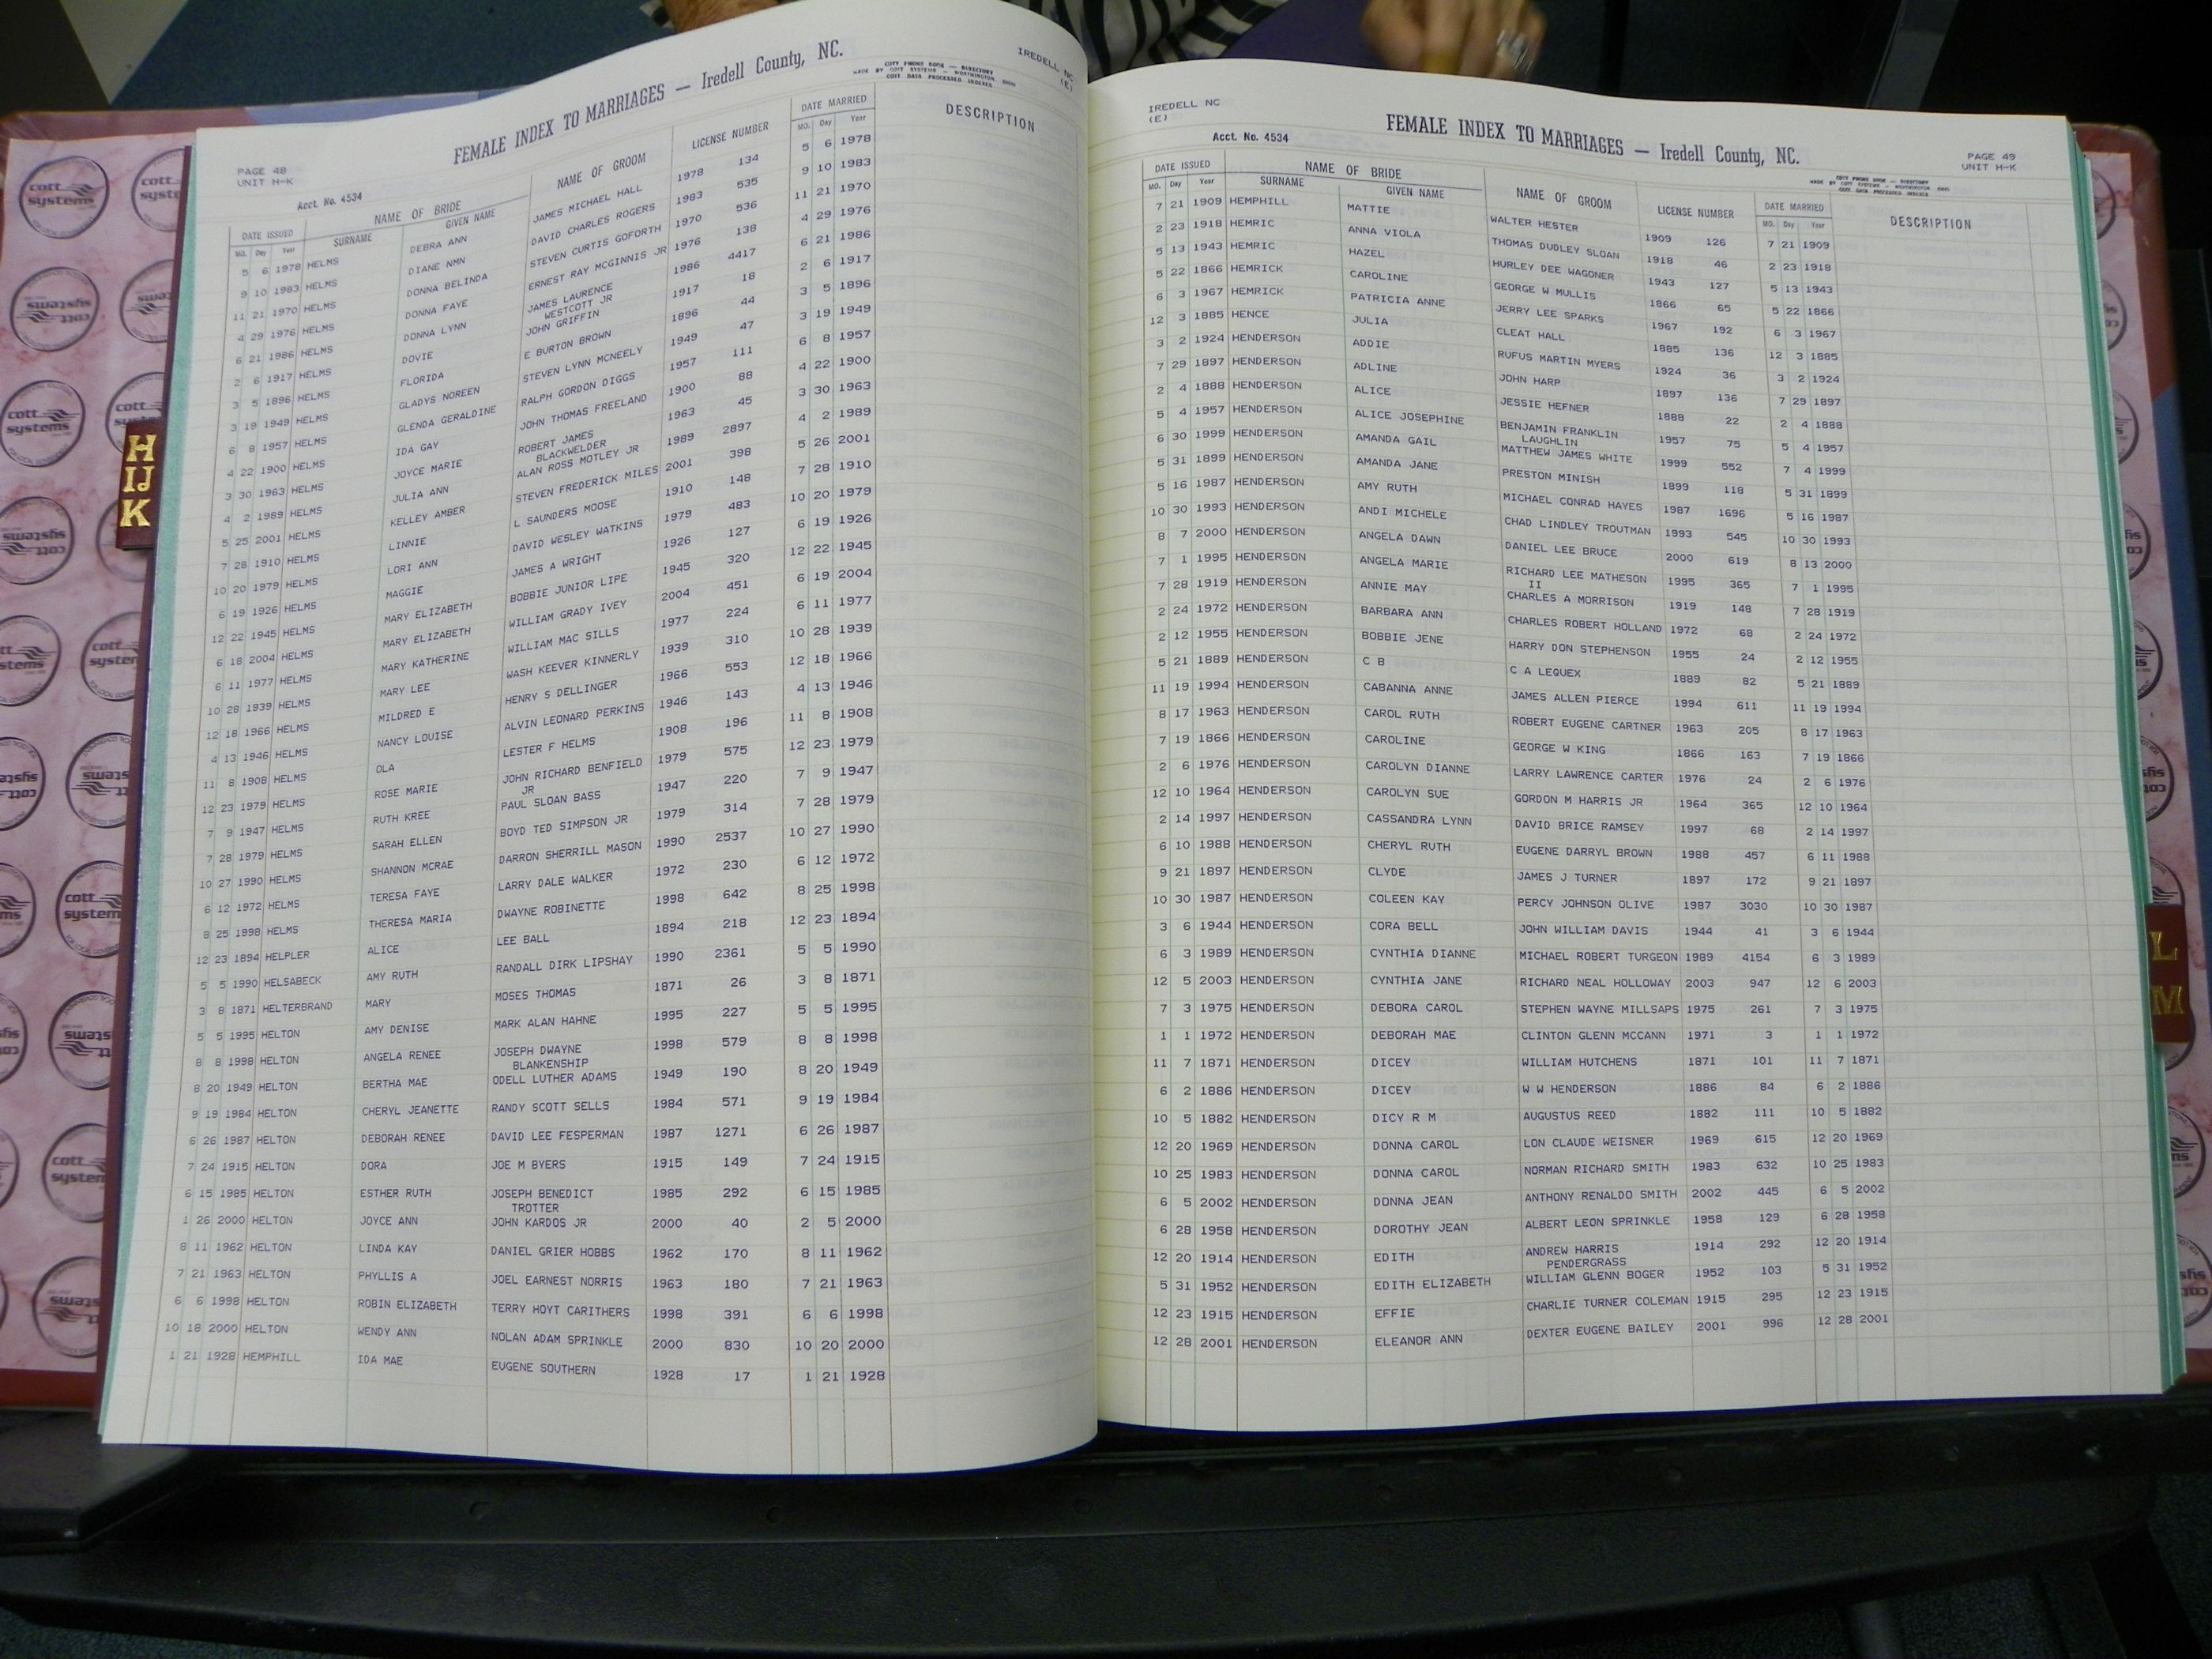 FEMALE INDEX TO MARRIAGES — Iredell County, NC.
IREDELL NC
(E)
PAGE 48
UNIT H-K
Acct. No. 4534
COTT PHONE BOOK — DIRECTORY
MADE BY COTT SYSTEMS — WORTHINGTON, OHIO
COTT DATA PROCESSED INDEXES
DATE ISSUED NAME OF BRIDE NAME OF GROOM LICENSE NUMBER DATE MARRIED DESCRIPTION
MO. Day Year SURNAME GIVEN NAME MO. Day Year
5 6 1978 HELMS DEBRA ANN JAMES MICHAEL HALL 1978 134 5 6 1978
9 10 1983 HELMS DIANE NMN DAVID CHARLES ROGERS 1983 535 9 10 1983
11 21 1970 HELMS DONNA BELINDA STEVEN CURTIS GOFORTH 1970 536 11 21 1970
4 29 1976 HELMS DONNA FAYE ERNEST RAY MCGINNIS JR 1976 138 4 29 1976
6 21 1986 HELMS DONNA LYNN JAMES LAURENCE 1986 4417 6 21 1986
WESTCOTT JR
2 6 1917 HELMS DOVIE JOHN GRIFFIN 1917 18 2 6 1917
3 5 1896 HELMS FLORIDA E BURTON BROWN 1896 44 3 5 1896
3 19 1949 HELMS GLADYS NOREEN STEVEN LYNN MCNEELY 1949 47 3 19 1949
6 8 1957 HELMS GLENDA GERALDINE RALPH GORDON DIGGS 1957 111 6 8 1957
4 22 1900 HELMS IDA GAY JOHN THOMAS FREELAND 1900 88 4 22 1900
3 30 1963 HELMS JOYCE MARIE ROBERT JAMES 1963 45 3 30 1963
BLACKWELDER
4 2 1989 HELMS JULIA ANN ALAN ROSS MOTLEY JR 1989 2897 4 2 1989
5 25 2001 HELMS KELLEY AMBER STEVEN FREDERICK MILES 2001 398 5 26 2001
7 28 1910 HELMS LINNIE L SAUNDERS MOOSE 1910 148 7 28 1910
10 20 1979 HELMS LORI ANN DAVID WESLEY WATKINS 1979 483 10 20 1979
6 19 1926 HELMS MAGGIE JAMES A WRIGHT 1926 127 6 19 1926
12 22 1945 HELMS MARY ELIZABETH BOBBIE JUNIOR LIPE 1945 320 12 22 1945
6 18 2004 HELMS MARY ELIZABETH WILLIAM GRADY IVEY 2004 451 6 19 2004
6 11 1977 HELMS MARY KATHERINE WILLIAM MAC SILLS 1977 224 6 11 1977
10 28 1939 HELMS MARY LEE WASH KEEVER KINNERLY 1939 310 10 28 1939
12 18 1966 HELMS MILDRED E HENRY S DELLINGER 1966 553 12 18 1966
4 13 1946 HELMS NANCY LOUISE ALVIN LEONARD PERKINS 1946 143 4 13 1946
11 8 1908 HELMS OLA LESTER F HELMS 1908 196 11 8 1908
12 23 1979 HELMS ROSE MARIE JOHN RICHARD BENFIELD 1979 575 12 23 1979
JR
7 9 1947 HELMS RUTH KREE PAUL SLOAN BASS 1947 220 7 9 1947
7 28 1979 HELMS SARAH ELLEN BOYD TED SIMPSON JR 1979 314 7 28 1979
10 27 1990 HELMS SHANNON MCRAE DARRON SHERRILL MASON 1990 2537 10 27 1990
6 12 1972 HELMS TERESA FAYE LARRY DALE WALKER 1972 230 6 12 1972
8 25 1998 HELMS THERESA MARIA DWAYNE ROBINETTE 1998 642 8 25 1998
12 23 1894 HELPLER ALICE LEE BALL 1894 218 12 23 1894
5 5 1990 HELSABECK AMY RUTH RANDALL DIRK LIPSHAY 1990 2361 5 5 1990
3 8 1871 HELTERBRAND MARY MOSES THOMAS 1871 26 3 8 1871
5 5 1995 HELTON AMY DENISE MARK ALAN HAHNE 1995 227 5 5 1995
8 8 1998 HELTON ANGELA RENEE JOSEPH DWAYNE 1998 579 8 8 1998
BLANKENSHIP
8 20 1949 HELTON BERTHA MAE ODELL LUTHER ADAMS 1949 190 8 20 1949
9 19 1984 HELTON CHERYL JEANETTE RANDY SCOTT SELLS 1984 571 9 19 1984
6 26 1987 HELTON DEBORAH RENEE DAVID LEE FESPERMAN 1987 1271 6 26 1987
7 24 1915 HELTON DORA JOE M BYERS 1915 149 7 24 1915
6 15 1985 HELTON ESTHER RUTH JOSEPH BENEDICT 1985 292 6 15 1985
TROTTER
1 26 2000 HELTON JOYCE ANN JOHN KARDOS JR 2000 40 2 5 2000
8 11 1962 HELTON LINDA KAY DANIEL GRIER HOBBS 1962 170 8 11 1962
7 21 1963 HELTON PHYLLIS A JOEL EARNEST NORRIS 1963 180 7 21 1963
6 6 1998 HELTON ROBIN ELIZABETH TERRY HOYT CARITHERS 1998 391 6 6 1998
10 18 2000 HELTON WENDY ANN NOLAN ADAM SPRINKLE 2000 830 10 20 2000
1 21 1928 HEMPHILL IDA MAE EUGENE SOUTHERN 1928 17 1 21 1928
IREDELL NC
(E)
Acct. No. 4534
FEMALE INDEX TO MARRIAGES — Iredell County, NC.
PAGE 49
UNIT H-K
DATE ISSUED NAME OF BRIDE NAME OF GROOM LICENSE NUMBER DATE MARRIED DESCRIPTION
MO. Day Year SURNAME GIVEN NAME MO. Day Year
7 21 1909 HEMPHILL MATTIE WALTER HESTER 1909 126 7 21 1909
2 23 1918 HEMRIC ANNA VIOLA THOMAS DUDLEY SLOAN 1918 46 2 23 1918
5 13 1943 HEMRIC HAZEL HURLEY DEE WAGONER 1943 127 5 13 1943
5 22 1866 HEMRICK CAROLINE GEORGE W MULLIS 1866 65 5 22 1866
6 3 1967 HEMRICK PATRICIA ANNE JERRY LEE SPARKS 1967 192 6 3 1967
12 3 1885 HENCE JULIA CLEAT HALL 1885 136 12 3 1885
3 2 1924 HENDERSON ADDIE RUFUS MARTIN MYERS 1924 36 3 2 1924
7 29 1897 HENDERSON ADLINE JOHN HARP 1897 136 7 29 1897
2 4 1888 HENDERSON ALICE JESSIE HEFNER 1888 22 2 4 1888
5 4 1957 HENDERSON ALICE JOSEPHINE BENJAMIN FRANKLIN 1957 75 5 4 1957
LAUGHLIN
6 30 1999 HENDERSON AMANDA GAIL MATTHEW JAMES WHITE 1999 552 7 4 1999
5 31 1899 HENDERSON AMANDA JANE PRESTON MINISH 1899 118 5 31 1899
5 16 1987 HENDERSON AMY RUTH MICHAEL CONRAD HAYES 1987 1696 5 16 1987
10 30 1993 HENDERSON ANDI MICHELE CHAD LINDLEY TROUTMAN 1993 545 10 30 1993
8 7 2000 HENDERSON ANGELA DAWN DANIEL LEE BRUCE 2000 619 8 13 2000
7 1 1995 HENDERSON ANGELA MARIE RICHARD LEE MATHESON 1995 365 7 1 1995
II
7 28 1919 HENDERSON ANNIE MAY CHARLES A MORRISON 1919 148 7 28 1919
2 24 1972 HENDERSON BARBARA ANN CHARLES ROBERT HOLLAND 1972 68 2 24 1972
2 12 1955 HENDERSON BOBBIE JENE HARRY DON STEPHENSON 1955 24 2 12 1955
5 21 1889 HENDERSON C B C A LEQUEX 1889 82 5 21 1889
11 19 1994 HENDERSON CABANNA ANNE JAMES ALLEN PIERCE 1994 611 11 19 1994
8 17 1963 HENDERSON CAROL RUTH ROBERT EUGENE CARTNER 1963 205 8 17 1963
7 19 1866 HENDERSON CAROLINE GEORGE W KING 1866 163 7 19 1866
2 6 1976 HENDERSON CAROLYN DIANNE LARRY LAWRENCE CARTER 1976 24 2 6 1976
12 10 1964 HENDERSON CAROLYN SUE GORDON M HARRIS JR 1964 365 12 10 1964
2 14 1997 HENDERSON CASSANDRA LYNN DAVID BRICE RAMSEY 1997 68 2 14 1997
6 10 1988 HENDERSON CHERYL RUTH EUGENE DARRYL BROWN 1988 457 6 11 1988
9 21 1897 HENDERSON CLYDE JAMES J TURNER 1897 172 9 21 1897
10 30 1987 HENDERSON COLEEN KAY PERCY JOHNSON OLIVE 1987 3030 10 30 1987
3 6 1944 HENDERSON CORA BELL JOHN WILLIAM DAVIS 1944 41 3 6 1944
6 3 1989 HENDERSON CYNTHIA DIANNE MICHAEL ROBERT TURGEON 1989 4154 6 3 1989
12 5 2003 HENDERSON CYNTHIA JANE RICHARD NEAL HOLLOWAY 2003 947 12 6 2003
7 3 1975 HENDERSON DEBORA CAROL STEPHEN WAYNE MILLSAPS 1975 261 7 3 1975
1 1 1972 HENDERSON DEBORAH MAE CLINTON GLENN MCCANN 1971 3 1 1 1972
11 7 1871 HENDERSON DICEY WILLIAM HUTCHENS 1871 101 11 7 1871
6 2 1886 HENDERSON DICEY W W HENDERSON 1886 84 6 2 1886
10 5 1882 HENDERSON DICY R M AUGUSTUS REED 1882 111 10 5 1882
12 20 1969 HENDERSON DONNA CAROL LON CLAUDE WEISNER 1969 615 12 20 1969
10 25 1983 HENDERSON DONNA CAROL NORMAN RICHARD SMITH 1983 632 10 25 1983
6 5 2002 HENDERSON DONNA JEAN ANTHONY RENALDO SMITH 2002 445 6 5 2002
6 28 1958 HENDERSON DOROTHY JEAN ALBERT LEON SPRINKLE 1958 129 6 28 1958
12 20 1914 HENDERSON EDITH ANDREW HARRIS 1914 292 12 20 1914
PENDERGRASS
5 31 1952 HENDERSON EDITH ELIZABETH WILLIAM GLENN BOGER 1952 103 5 31 1952
12 23 1915 HENDERSON EFFIE CHARLIE TURNER COLEMAN 1915 295 12 23 1915
12 28 2001 HENDERSON ELEANOR ANN DEXTER EUGENE BAILEY 2001 996 12 28 2001
H
IJ
K
L
M
cott
systems